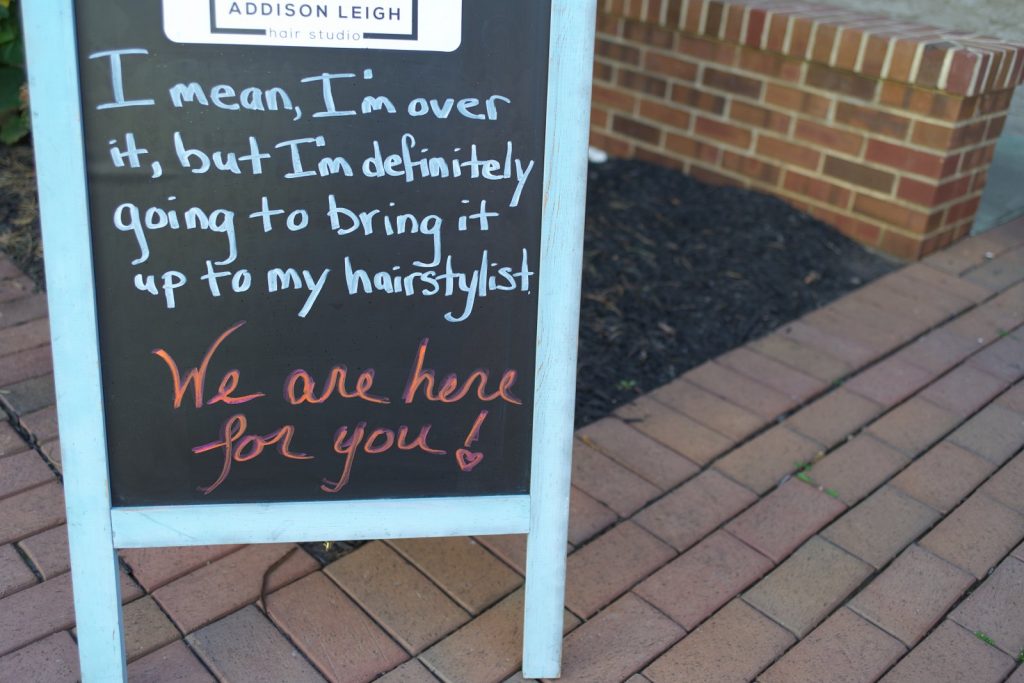 ADDISON LEIGH
hair studio
I mean, I'm over
it, but I'm definitely
going to bring it
up to my hairstylist.
We are here
for you!